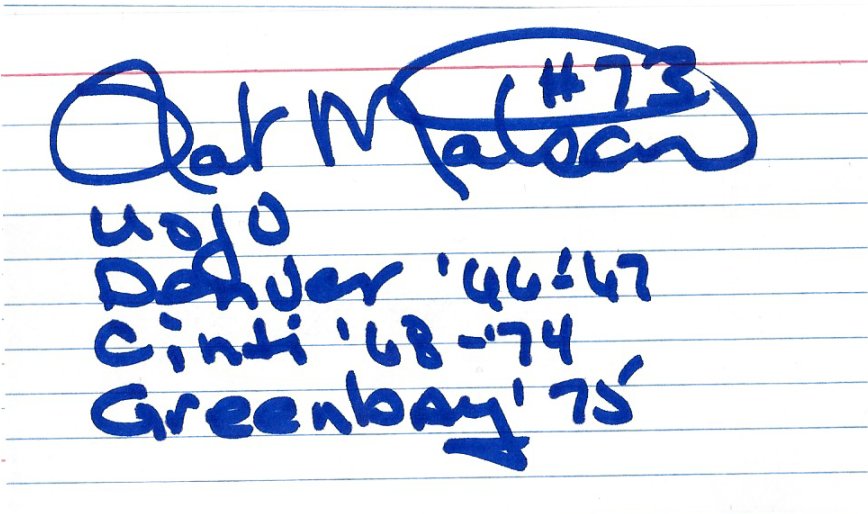 Pat Matson #73
U of O
Denver '66-'67
Cinti '68-'74
Greenbay '75